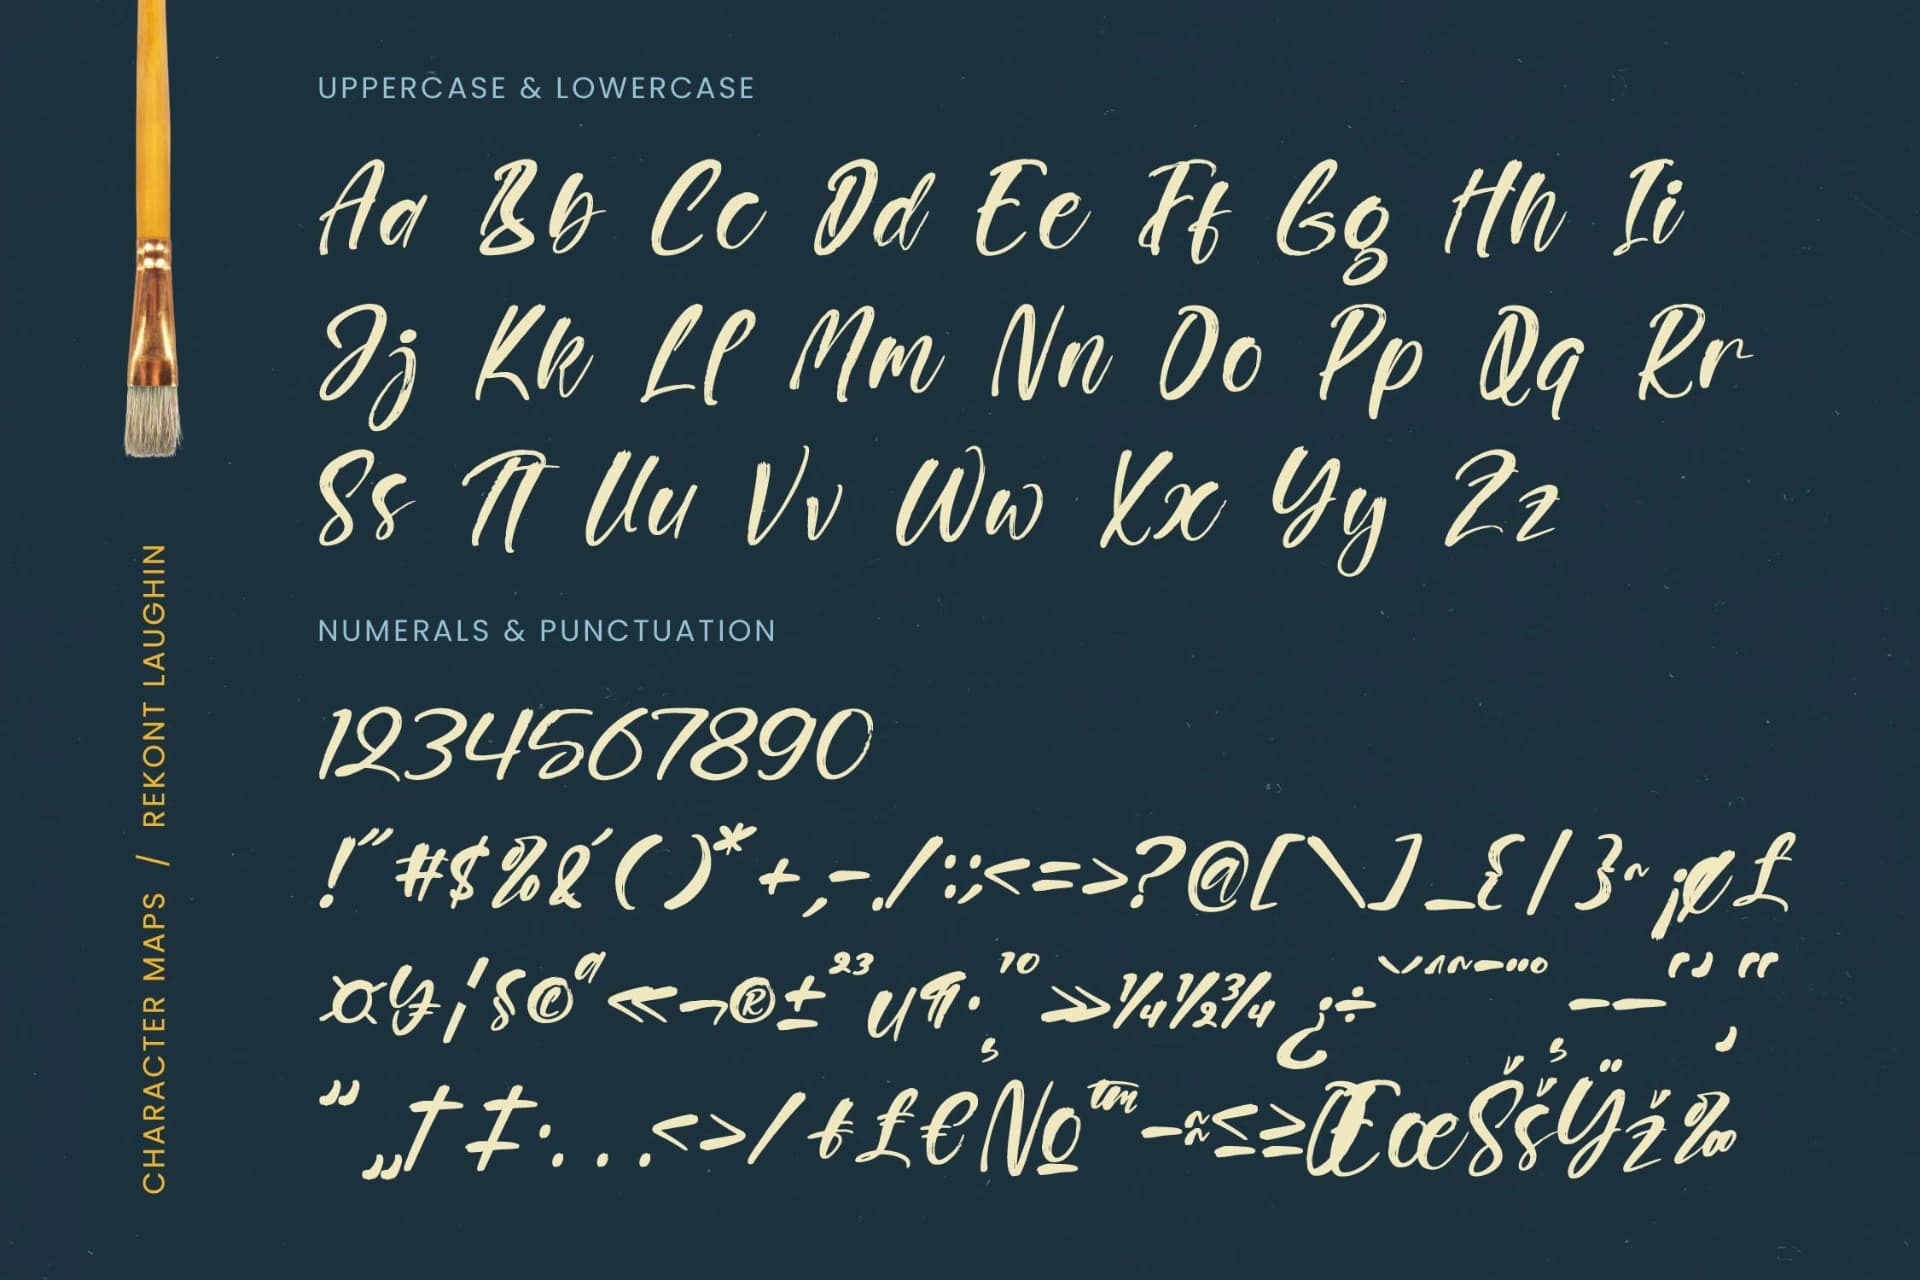 UPPERCASE & LOWERCASE
Aa Bb Cc Dd Ee Ff Gg Hh Ii
Jj Kk Ll Mm Nn Oo Pp Qq Rr
Ss Tt Uu Vv Ww Xx Yy Zz
NUMERALS & PUNCTUATION
1234567890
!"#$%&´()*+,-./:;<=>?@[\]_{|}~¡¢£
¤¥¦§©ª«¬®±²³µ¶·¸¹º»¼½¾¿÷ˇˆ˜¯… ̦–—‘’“
”„†‡•...‹›/₺₤€№™−≈≤≥ŒœŠšŸž‰
CHARACTER MAPS / REKONT LAUGHIN